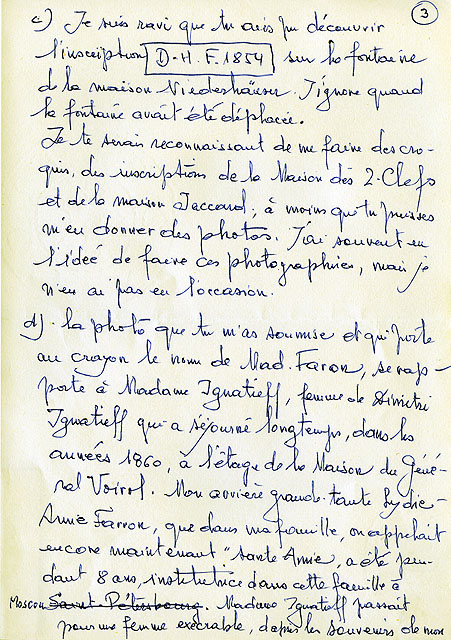 3
c) Je suis ravi que tu aies pu découvrir
l'inscription D.-H.F. 1854 sur la fontaine
de la maison Niederhäuser. J'ignore quand
la fontaine avait été déplacée.
Je te serais reconnaissant de me faire des cro-
quis, des inscriptions de la Maison des 2-Clefs
et de la maison Jaccard, à moins que tu puisses
m'en donner des photos. J'ai souvent eu
l'idée de faire ces photographies, mais je
n'en ai pas eu l'occasion.
d) La photo que tu m'as soumise et qui porte
au crayon le nom de Mad. Faron, se rap-
porte à Madame Ignatieff, femme de Dimitri
Ignatieff qui a séjourné longtemps, dans les
années 1860, à l'étage de la Maison du Géné-
ral Voirol. Mon arrière grande-tante Lydie-
Annie Farron, que dans ma famille, on appelait
encore maintenant "tante Annie, a été pen-
dant 8 ans, institutrice dans cette famille à
Moscou Saint-Pétersbourg. Madame Ignatieff passait
pour une femme exécrable, d'après les souvenirs de mon